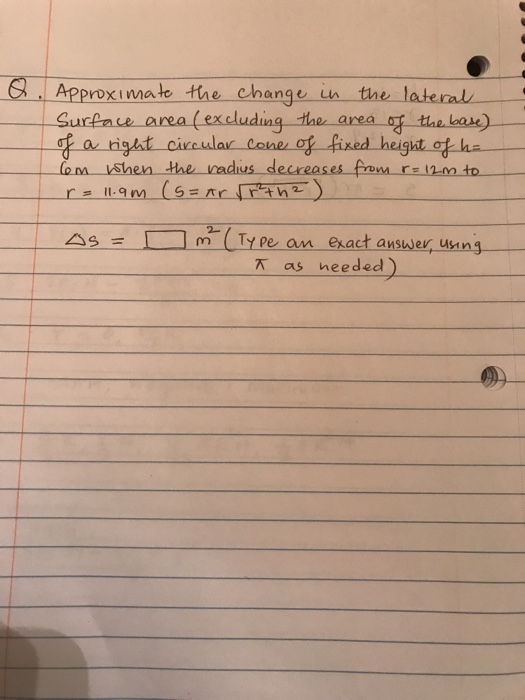 Q. Approximate the change in the lateral
Surface area (excluding the area of the base)
of a right circular cone of fixed height of h=
6m when the radius decreases from r=12m to
r = 11.9m (S = πr √r²+h²)
ΔS = □ m² (Type an exact answer, using
π as needed)